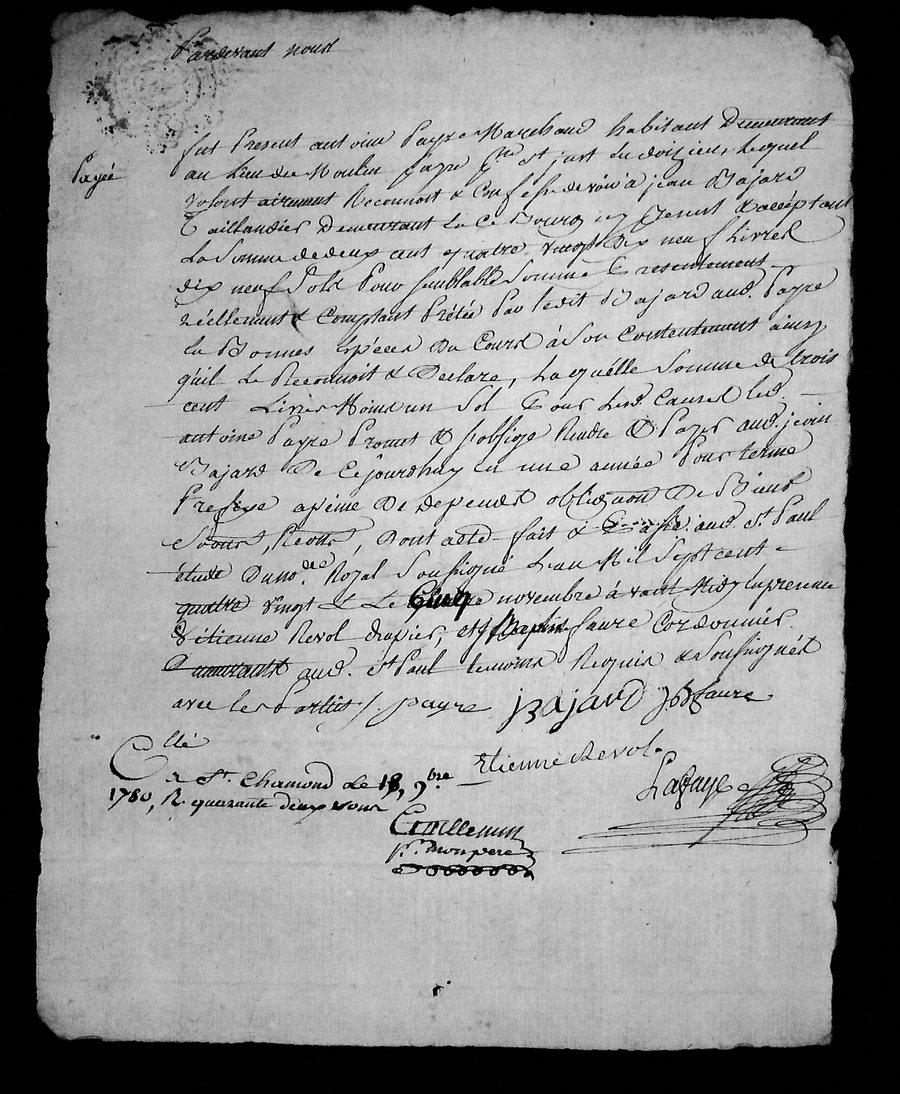 Pardevant nous
fut Present antoine Payre Marchand habitant Demeurant
Payéé
au lieu du Moulin Payre St just en doizieu, Lequel
volontairement Reconnoit & Confesse devoir a jean Bajard
Taillandier Demeurant en ce Bourg icy Present & accéptant
La Somme de deux cent quatre vingt Dix neuf Livres
dix neuf Sols Pour semblable Somme Presentement
réellement & Comptant Prétée Par ledit Bajard aud. Payre
en Bonnes Espéces Du Cours à Son Contentement ainsy
quil Le Reconnoit & Declare, Laquélle Somme de trois
cent Livres Moins un Sol Pour Lesd. Causes led.
antoine Payre Promet & s'oblige Rendre & Payer aud. jean
Bajard De Cejourdhuy en une année Pour terme
Prefixe a péine De depends obligaon De Biens
Soumns, Renons, Dont acte fait & Passé aud. St Paul
étude Du no.re Royal Soussigné L'an Mil Sept cent
quatre vingt & Le Cinq novembre avant Midy en presence
d'étienne Revol drapier, & faure Cordonnier
Demeurants aud. St Paul temoins Requis & Soussignés
avec les Parties /. payre jBajard faure
Etienne Revol
Lafaye
C llé
a St. Chamond Le 18, 9bre
1780, R. quarante deux sous
p.r mon pere